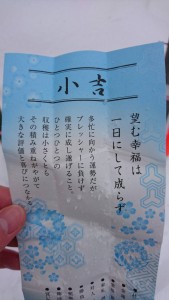 小吉
望む幸福は
一日にして成らず
多忙に向かう運勢だが
プレッシャーに負けず
確実に成し遂げること。
ひとつひとつの
収穫は小さくとも
その積み重ねがやがて
大きな評価と喜びにつながる